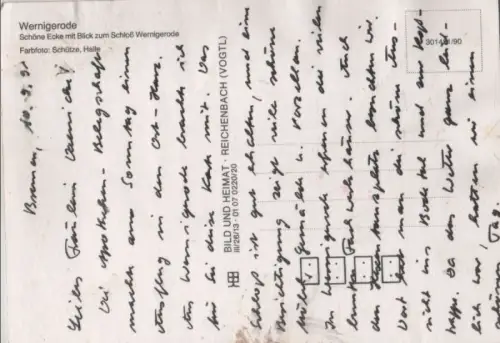 Wernigerode
Schöne Ecke mit Blick zum Schloß Wernigerode
Farbfoto: Schütze, Halle
BILD UND HEIMAT · REICHENBACH (VOGTL)
III/26/13 · 01 07 0220/20
Bremen, 10.9.91
Liebes Fräulein
Die Apotheken-
machte am Sonntag einen
Ausflug in den Ost-Harz.
Aus Wernigerode brachte ich
Ihnen diese Karte mit. Das
Schloß ist gut erhalten, und eine
Besichtigung zeigt viele schöne
Möbel, Gemälde u. Porzellan.
In Wernigerode die vielen
bunten Fachwerkhäuser. Auch
den Hexentanzplatz besuchten wir.
Dort hat man die schöne
nicht ins Bodetal und zur
trappe. Da das Wetter ganz
lich war, hatten wir einen
schönen Tag.